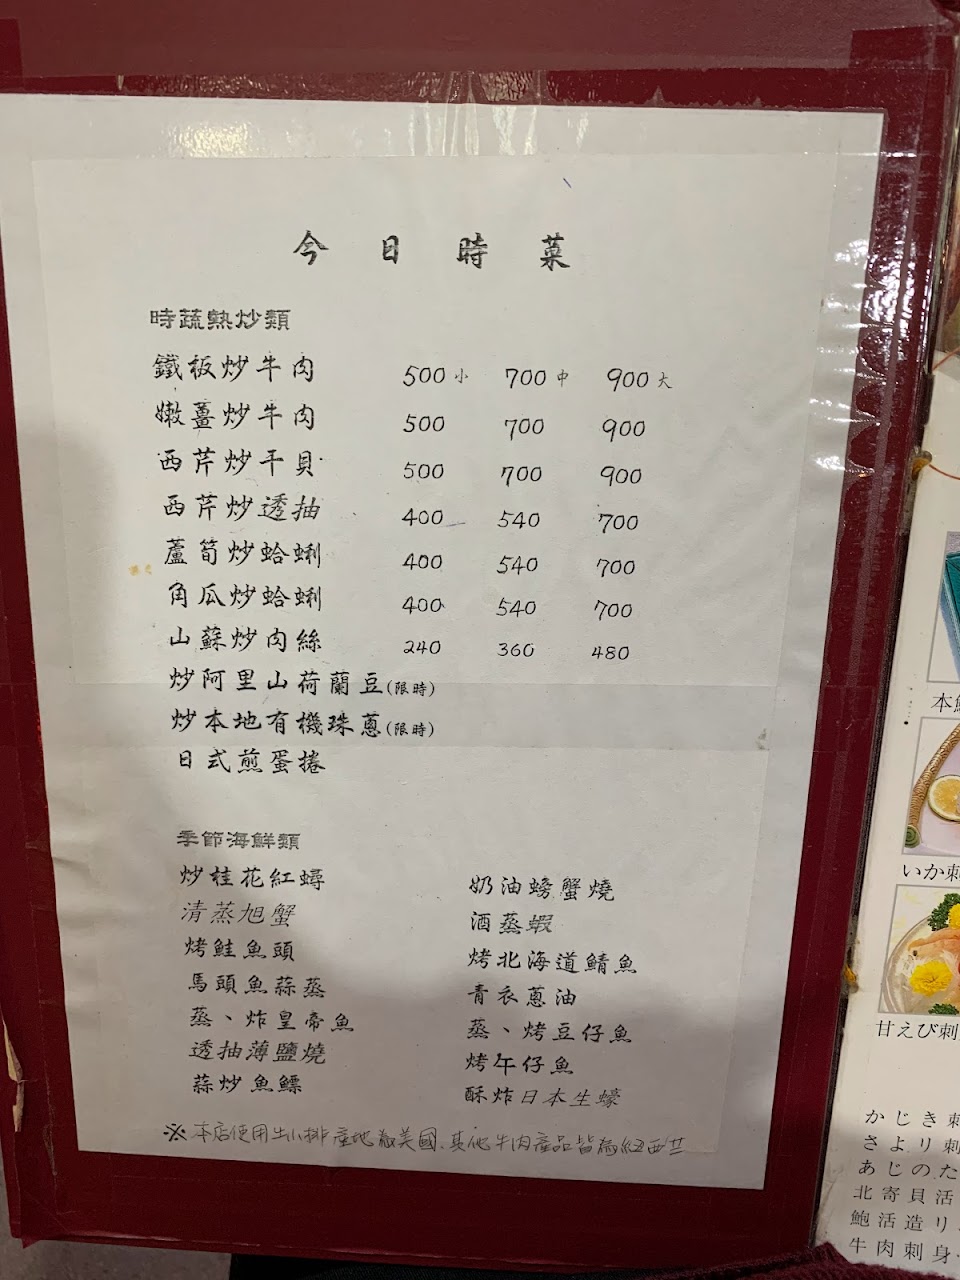 今日時菜
時蔬熱炒類
鐵板炒牛肉 500小 700中 900大
嫩薑炒牛肉 500 700 900
西芹炒干貝 500 700 900
西芹炒透抽 400 540 700
蘆筍炒蛤蜊 400 540 700
角瓜炒蛤蜊 400 540 700
山蘇炒肉絲 240 360 480
炒阿里山荷蘭豆(限時)
炒本地有機珠蔥(限時)
日式煎蛋捲
季節海鮮類
炒桂花紅蟳
清蒸旭蟹
烤鮭魚頭
馬頭魚蒜蒸
蒸、炸皇帝魚
透抽薄鹽燒
蒜炒魚鰾
奶油螃蟹燒
酒蒸蝦
烤北海道鯖魚
青衣蔥油
蒸、烤豆仔魚
烤午仔魚
酥炸日本生蠔
※本店使用牛小排產地為美國、其他牛肉產品皆為紐西兰
本
いか刺
甘えび刺
かじき刺
さより刺
あじのた
北寄貝活
鮑活造り
牛肉刺身